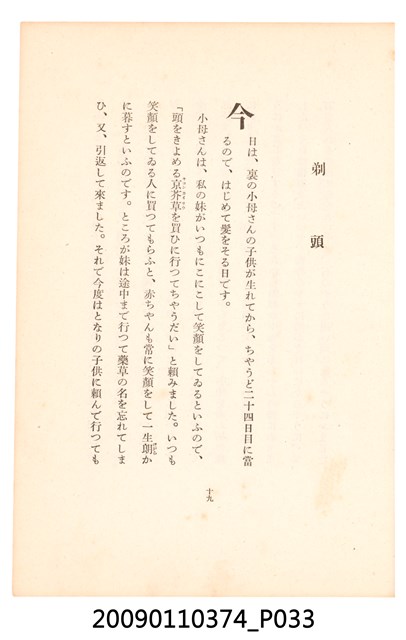 剃頭
今日は、裏の小母さんの子供が生れてから、ちやうど二十四日目に當
るので、はじめて髮をそる日です。
小母さんは、私の妹がいつもにこにこして笑顏をしてゐるといふので、
「頭をきよめる京芥草を買ひに行つてちやうだい」と頼みました。いつも
笑顏をしてゐる人に買つてもらふと、赤ちやんも常に笑顏をして一生朗か
に暮すといふのです。ところが妹は途中まで行つて藥草の名を忘れてしま
ひ、又、引返して來ました。それで今度はとなりの子供に頼んで行つても
十九
20090110374_P033